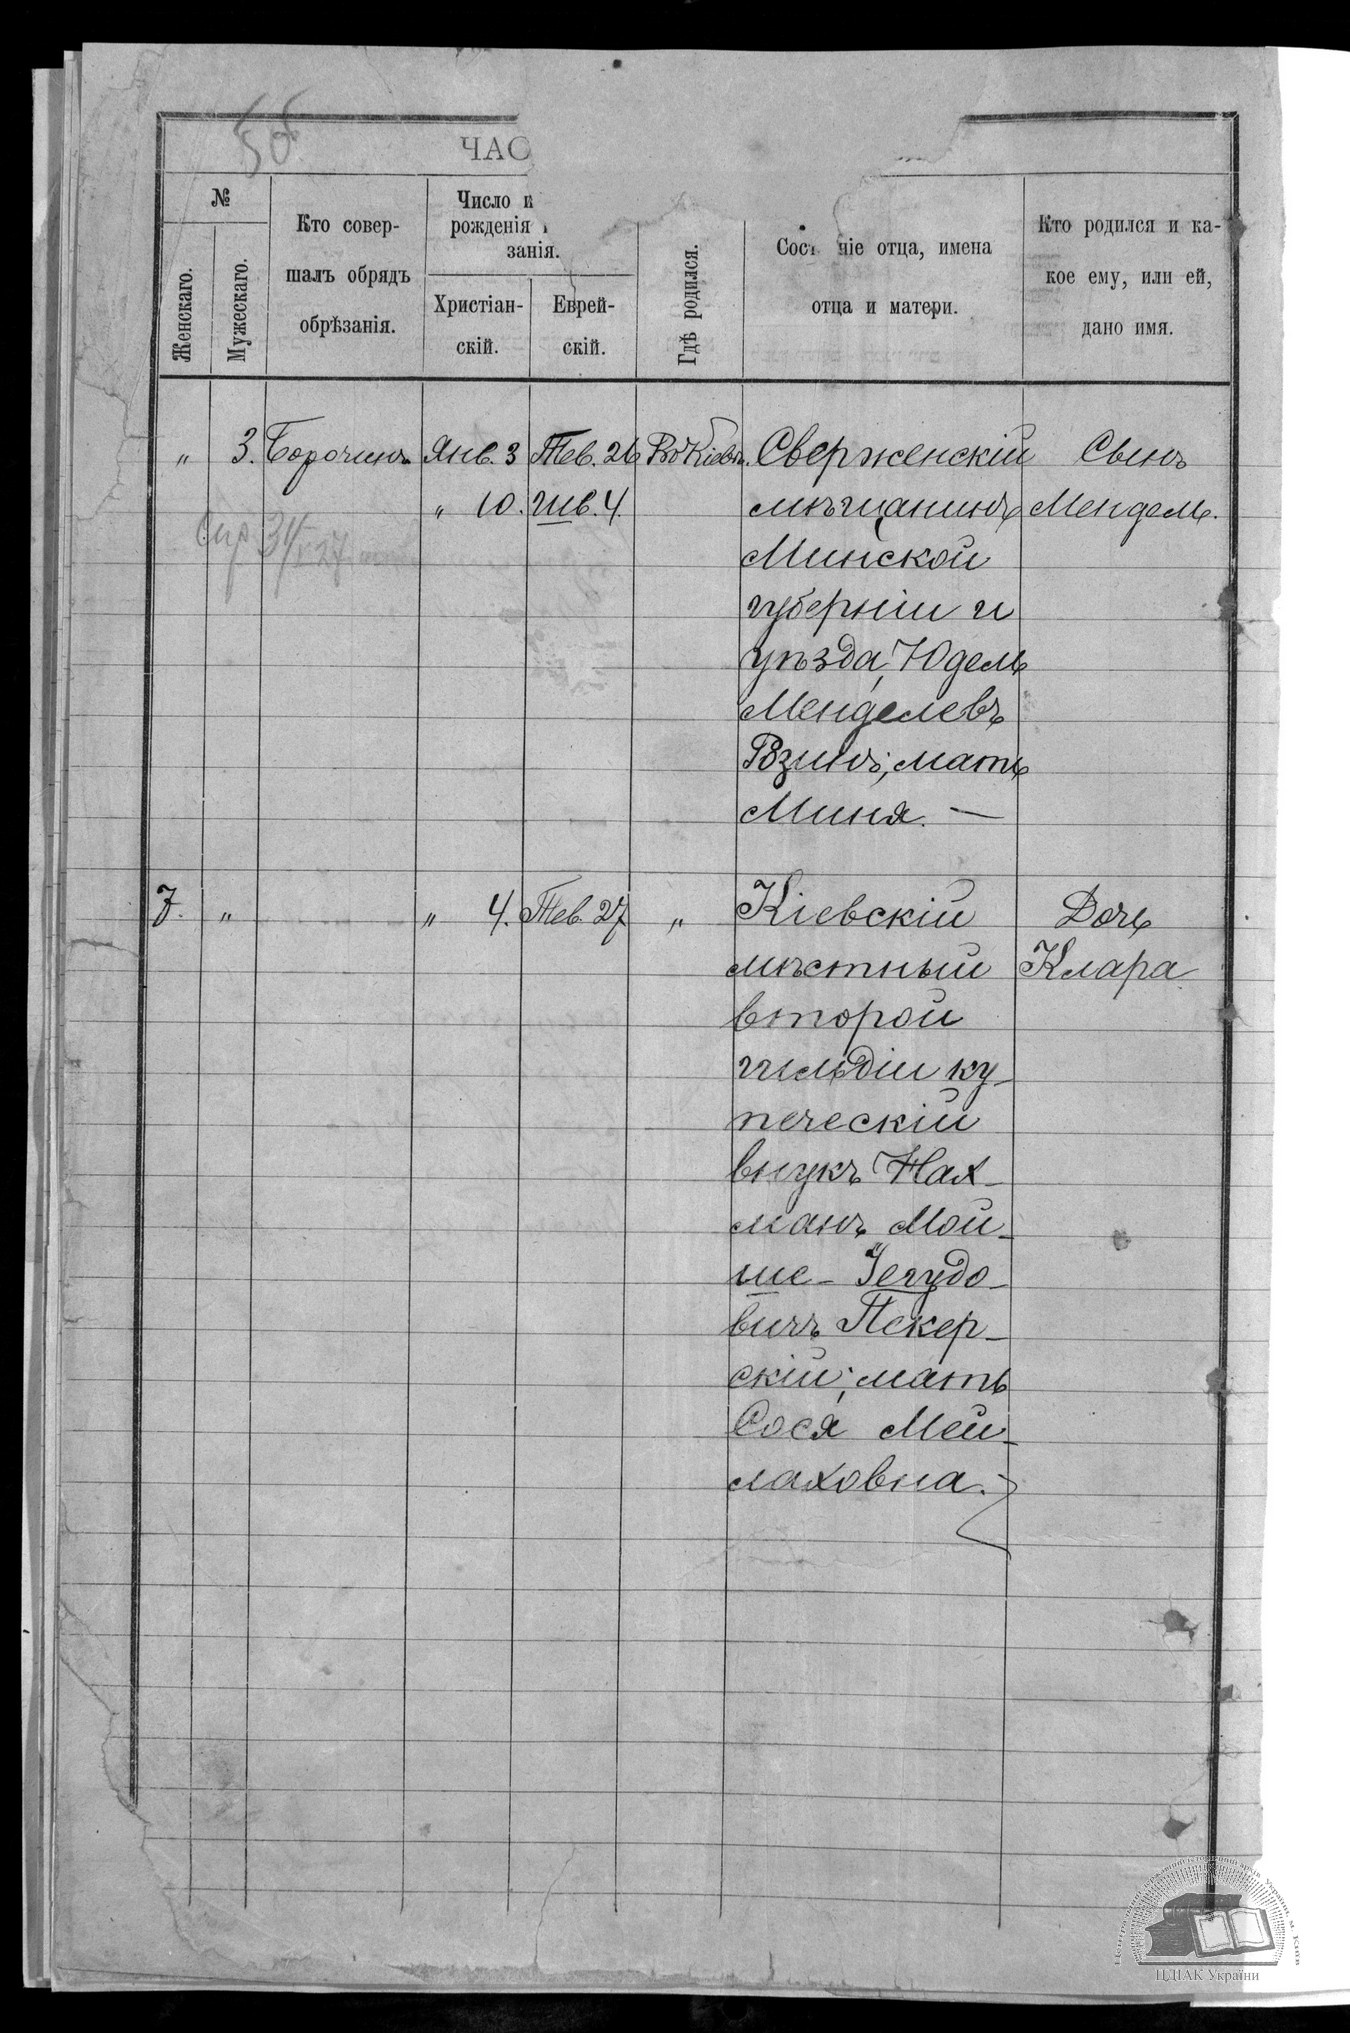 58
ЧАС
№
Женскаго.
Мужескаго.
Кто совер-
шалъ обрядъ
обрѣзанія.
Число и
рожденія
занія.
Христіан-
скій.
Еврей-
скій.
Гдѣ родился.
Сост ніе отца, имена
отца и матери.
Кто родился и ка-
кое ему, или ей,
дано имя.
„ 3. Борочинъ Янв. 3 Тев. 26 Въ Кіевѣ. Сверженскій Сынъ
„ 10. Шв. 4. мѣщанинъ Мендель.
Минской
губерніи и
уѣзда, Юдель
Менделевъ
Взинъ; мать
Миня. —
7. „ „ 4. Тев. 27 „ Кіевскій Дочь
мѣстный Клара
второй
гильдіи ку-
печескій
внукъ Нах-
манъ Мой-
ше-Іегудо-
вичъ Пекер-
скій; мать
Сося Мей-
лаховна.
ЦДІАК України